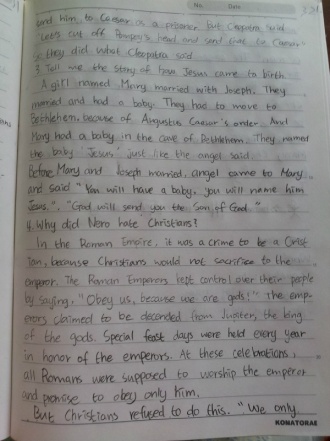 No. Date 221
send him to Caesar as a prisoner but Cleopatra said
"Let's cut off Pompey's head and send it to Caesar"
they did what Cleopatra said
3. Tell me the story of how Jesus came to birth
A girl named Mary married with Joseph. They
married and had a baby. They had to move to
Bethlehem, because of Augustus Caesar's order. And
Mary had a baby in the cave of Bethlehem. They named
the baby 'Jesus' just like the angel said.
Before Mary and Joseph married, angel came to Mary
and said "You will have a baby, you will name him
Jesus.", "God will send you the Son of God."
4. Why did Nero hate Christians?
In the Roman Empire, it was a crime to be a Christ
ian, because Christians would not sacrifice to the
emperor. The Roman Emperors kept control over their people
by saying, "Obey us, because we are gods!" The emp-
erors claimed to be decended from Jupiter, the king
of the gods. Special feast days were held every year
in honor of the emperors. At these celebrations,
all Romans were supposed to worship the emperor
and promise to obey only him.
But Christians refused to do this. "We only
KONATORAE